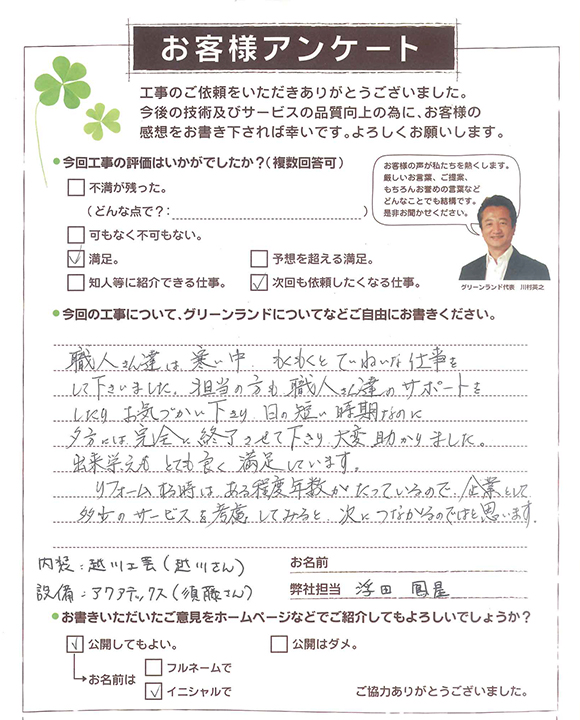 お客様アンケート
工事のご依頼をいただきありがとうございました。
今後の技術及びサービスの品質向上の為に、お客様の
感想をお書き下されば幸いです。よろしくお願いします。
●今回工事の評価はいかがでしたか？（複数回答可）
不満が残った。
（どんな点で？：　）
可もなく不可もない。
満足。
予想を超える満足。
知人等に紹介できる仕事。
次回も依頼したくなる仕事。
お客様の声が私たちを熱くします。
厳しいお言葉、ご提案、
もちろんお誉めの言葉など
どんなことでも結構です。
是非お聞かせください。
グリーンランド代表　川村英之
●今回の工事について、グリーンランドについてなどご自由にお書きください。
職人さん達は、寒い中、もくもくとていねいな仕事を
して下さいました。担当の方も職人さん達のサポートを
したり お気づかい下さり 日の短い時期なのに
夕方には完全に終了させて下さり大変助かりました。
出来栄えも とても良く満足しています。
リフォームする時は、ある程度年数がたっているので、企業として
多少のサービスを考慮してみると、次につながるのではと思います。
内装：越川工芸（越川さん）
設備：アクアテックス（須藤さん）
お名前
弊社担当　浮田
●お書きいただいたご意見をホームページなどでご紹介してもよろしいでしょうか？
公開してもよい。
公開はダメ。
お名前は
フルネームで
イニシャルで
ご協力ありがとうございました。